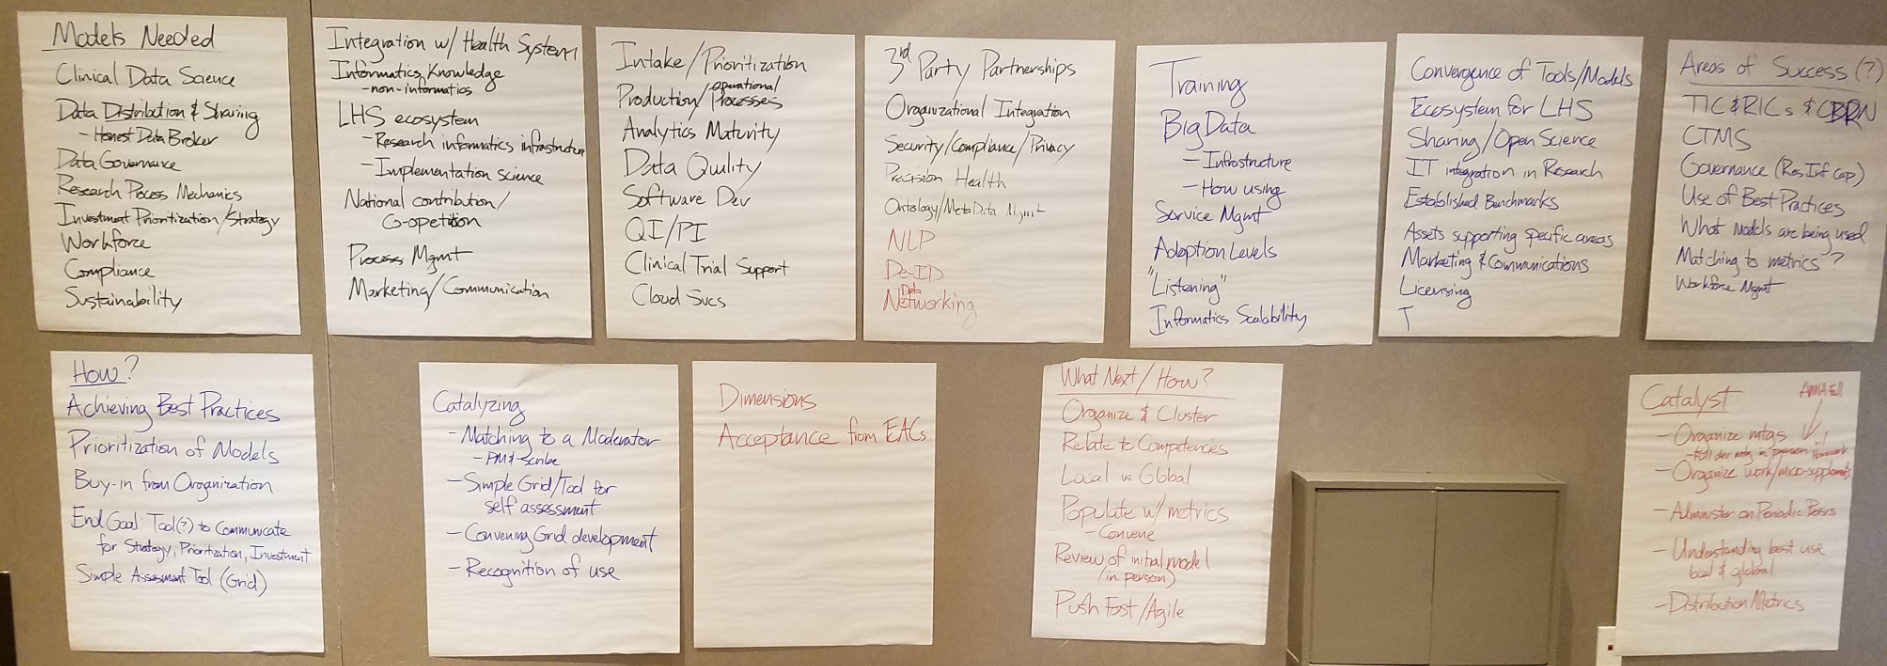 Models Needed
Clinical Data Science
Data Distribution & Sharing
- Honest Data Broker
Data Governance
Research Process Mechanics
Investment Prioritization/Strategy
Workforce
Compliance
Sustainability
Integration w/ Health System
Informatics Knowledge
- non-informatics
LHS ecosystem
- Research informatics infrastructure
- Implementation science
National contribution/
Co-opetition
Process Mgmt
Marketing/Communication
Intake/Prioritization
Production/operational Processes
Analytics Maturity
Data Quality
Software Dev
QI/PI
Clinical Trial Support
Cloud Svcs
3rd Party Partnerships
Organizational Integration
Security/Compliance/Privacy
Precision Health
Ontology/MetaData Mgmt
NLP
De-ID
Data
Networking
Training
Big Data
- Infrastructure
- How using
Service Mgmt
Adoption Levels
"Listening"
Informatics Scalability
Convergence of Tools/Models
Ecosystem for LHS
Sharing/Open Science
IT integration in Research
Established Benchmarks
Assets supporting specific areas
Marketing & Communications
Licensing
T
Areas of Success (?)
TIC & RICs &
CTMS
Governance (Res Inf Cap)
Use of Best Practices
What models are being used
Matching to metrics?
Workforce Mgmt
How?
Achieving Best Practices
Prioritization of Models
Buy-in from Organization
End Goal Tool(?) to Communicate
for Strategy, Prioritization, Investment
Simple Assessment Tool (Grid)
Catalyzing
- Matching to a Moderator
- PM & Scribe
- Simple Grid/Tool for
self assessment
- Convening Grid development
- Recognition of use
Dimensions
Acceptance from EACs
What Next/How?
Organize & Cluster
Relate to Competencies
Local vs Global
Populate w/ metrics
- Convene
Review of initial model
(in person)
Push Fast/Agile
Catalyst
- Organize mtgs
in person
- Organize work/
- Administer on Periodic
- Understanding best use
local & global
- Distribution Metrics